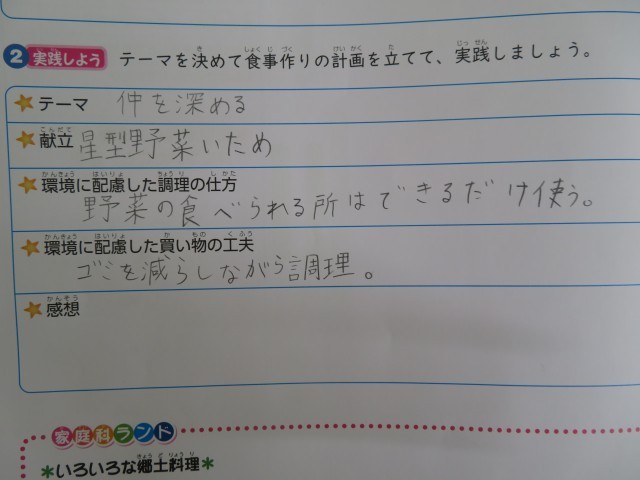 2 実践しよう テーマを決めて食事作りの計画を立てて、実践しましょう。
テーマ 仲を深める
献立 星型野菜いため
環境に配慮した調理の仕方
野菜の食べられる所はできるだけ使う。
環境に配慮した買い物の工夫
ゴミを減らしながら調理。
感想
家庭科ランド
*いろいろな郷土料理*